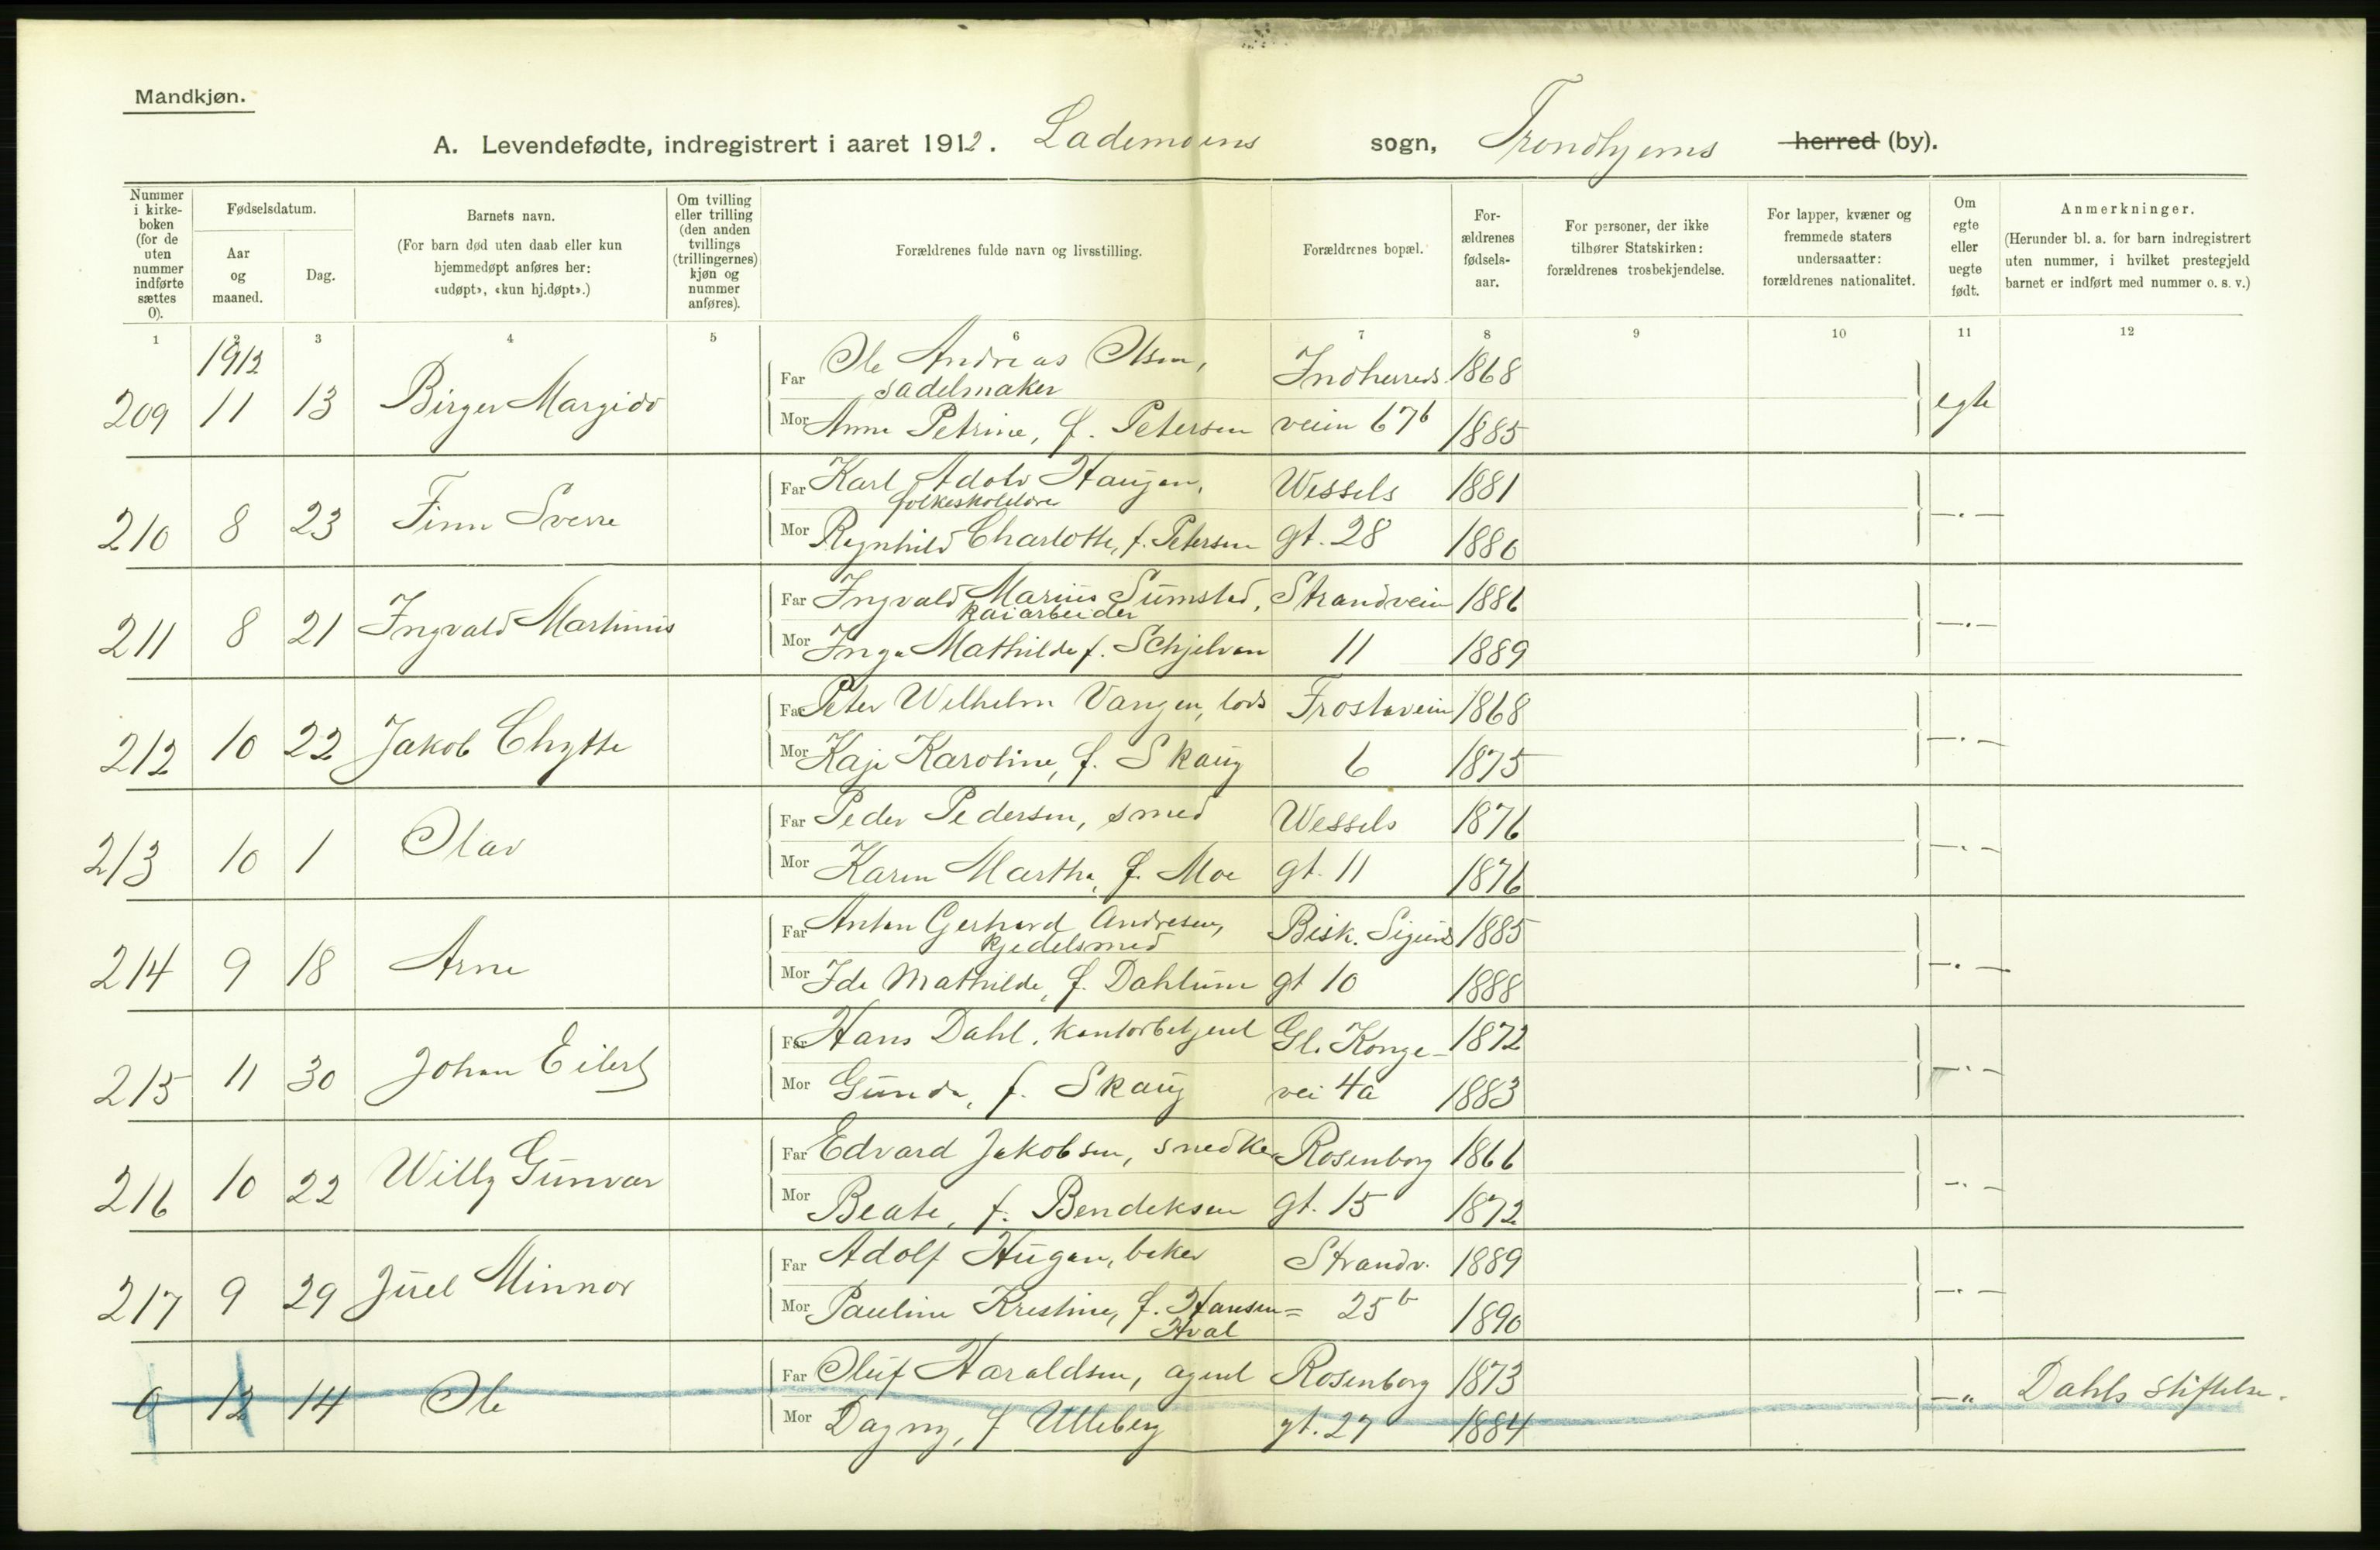 Mandkjøn.
A. Levendefødte, indregistrert i aaret 1912. Lademoens sogn, Trondhjems herred (by).
Nummer i kirke-boken (for de uten nummer indførte sættes 0).
Fødselsdatum.
Aar og maaned.
Dag.
Barnets navn.
(For barn død uten daab eller kun hjemmedøpt anføres her: «udøpt», «kun hj.døpt».)
Om tvilling eller trilling (den anden tvillings (trillingernes) kjøn og nummer anføres).
Forældrenes fulde navn og livsstilling.
Forældrenes bopæl.
For-ældrenes fødsels-aar.
For personer, der ikke tilhører Statskirken: forældrenes trosbekjendelse.
For lapper, kvæner og fremmede staters undersaatter: forældrenes nationalitet.
Om egte eller uegte født.
Anmerkninger.
(Herunder bl. a. for barn indregistrert uten nummer, i hvilket prestegjeld barnet er indført med nummer o. s. v.)
1 2 3 4 5 6 7 8 9 10 11 12
1912
Far Ole Andreas Olsen, Indherreds 1868
sadelmaker
209 11 13 Birger Margido egte
Mor Anna Petrine, f. Petersen veien 67b 1885
Far Karl Adolv Haugan, Wessels 1881
folkeskolelærer
210 8 23 Finn Sverre —.—
Mor Ragnhild Charlotte, f. Petersen gt. 28 1880
Far Ingvald Marius Sumstad, Strandveien 1886
kaiarbeider
211 8 21 Ingvald Martinius —.—
Mor Inga Mathilde f. Schjelvan 11 1889
Far Peter Wilhelm Vangen, lods Frostaveien 1868
212 10 22 Jakob Chytte —.—
Mor Kaja Karoline, f. Skaug 6 1875
Far Peder Pedersen, smed Wessels 1876
213 10 1 Olav —.—
Mor Karen Martha, f. Moe gt. 11 1876
Far Anton Gerhard Andresen, Bisk. Sigurds 1885
kjedelsmed
214 9 18 Arne —.—
Mor Ida Mathilde, f. Dahlum gt 10 1888
Far Hans Dahl, kontorbetjent Gl. Konge- 1872
215 11 30 Johan Eilert —.—
Mor Gunda, f. Skaug vei 4a 1883
Far Edvard Jakobsen, snedker Rosenborg 1866
216 10 22 Willy Gunvar —.—
Mor Beate, f. Bendeksen gt. 15 1872
Far Adolf Hugan, baker Strandv. 1889
217 9 29 Juel Minnor —.—
Mor Pauline Kristine, f. Hansen= 25b 1890
Hval
Far Oluf Haraldsen, agent Rosenborg 1873
0 12 14 Ole —"— Dahls stiftelse.
Mor Dagny, f Ulleberg gt. 27 1884